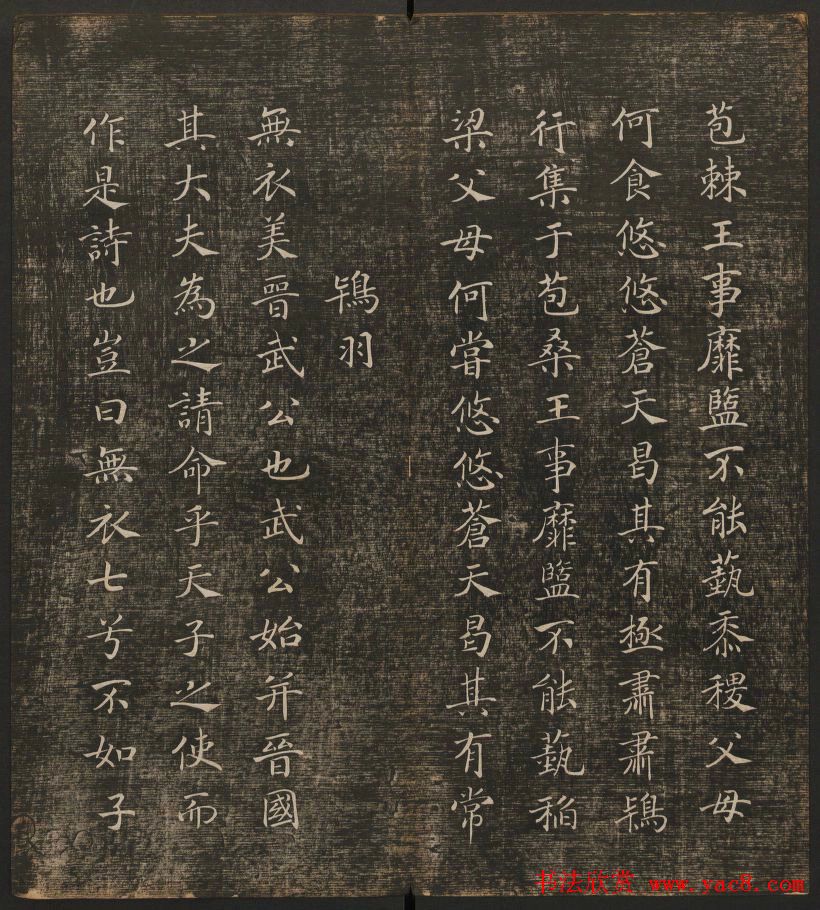 苞棘王事靡盬不能蓺黍稷父母
何食悠悠蒼天曷其有極肅肅鴇
行集于苞桑王事靡盬不能蓺稻
梁父母何嘗悠悠蒼天曷其有常
鴇羽
無衣美晉武公也武公始并晉國
其大夫為之請命乎天子之使而
作是詩也豈曰無衣七兮不如子
书法欣赏 www.yac8.com